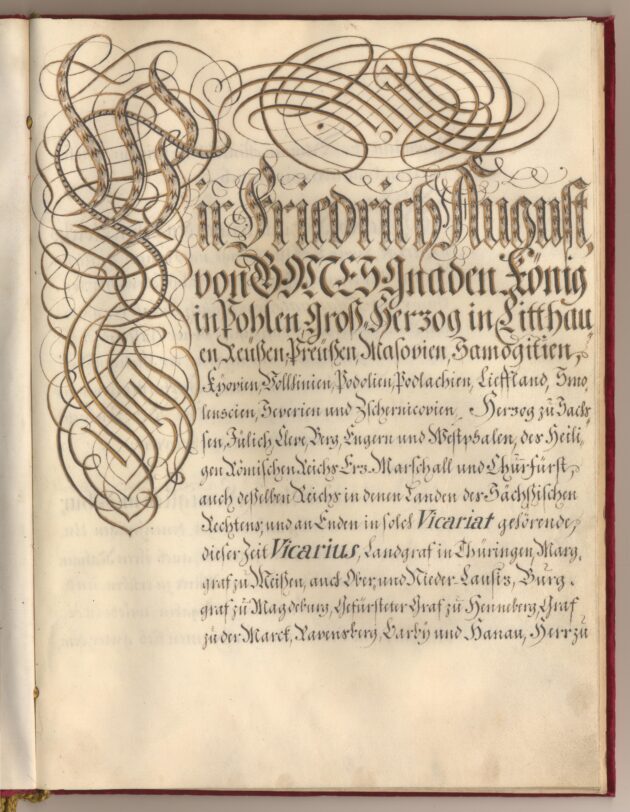 Wir Friedrich August,
von GOTTES Gnaden König
in Pohlen, Groß-Herzog in Litthau
en, Reußen, Preußen, Masovien, Samogitien,
Kyovien, Vollhinien, Podolien, Podlachien, Lieffland, Smo
lenscien, Severien und Zschernicovien, Herzog zu Sach-
sen, Jülich, Cleve, Berg, Engern und Westphalen, des Heili-
gen Römischen Reichs Erz-Marschall und Churfürst,
auch deßelben Reichs in denen Landen des Sächßischen
Rechtens, und an Enden in solch Vicariat gehörende,
dieser Zeit Vicarius, Landgraf in Thüringen, Marg-
graf zu Meißen, auch Ober- und Nieder-Lausiz, Burg-
graf zu Magdeburg, Gefürsteter Graf zu Henneberg, Graf
zu der Marck, Ravensberg, Barby und Hanau, Herr zu